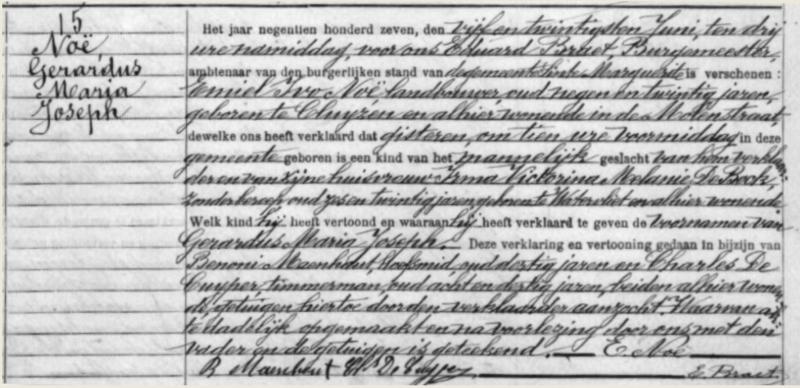 15
Noë,
Gerardus
Maria
Joseph
Het jaar negentien honderd zeven, den vijf en twintigsten Juni, ten drij
ure namiddag, voor ons Eduard Braet Burgemeester,
ambtenaar van den burgerlijken stand van de gemeente Sinte Margriete is verschenen :
Emiel Ivo Noë, landbouwer, oud negen en twintig jaren,
geboren te Cluyzen en alhier wonende in de Molenstraat
dewelke ons heeft verklaard dat gisteren, om tien ure voormiddag in deze
gemeente geboren is een kind van het mannelijk geslacht van hem verkla-
der en van zijne huisvrouw Irma Victorina Melanie De Bock,
zonder beroep, oud zes en twintig jaren geboren te Watervliet en alhier wonende.
Welk kind hij heeft vertoond en waaraan hij heeft verklaard te geven de voornamen van
Gerardus Maria Joseph. Deze verklaring en vertooning gedaan in bijzijn van
Benoni Maenhout, hoefsmid, oud dertig jaren en Charles De
Cuyper timmerman, oud acht en dertig jaren, beiden alhier wonen-
de, getuigen hiertoe door den verklaarder aanzocht. Waarvan akt
te dadelijk opgemaakt en na voorlezing door ons met den
vader en de getuigen is geteekend. E. Noë
B Maenhout Ch. De Cuyper E. Braet